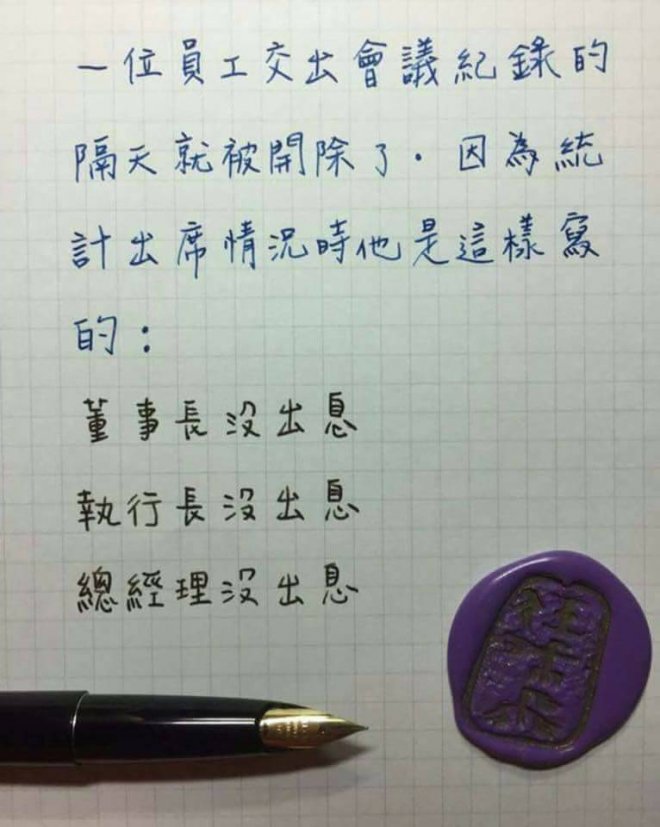 一位員工交出會議紀錄的
隔天就被開除了．因為統
計出席情況時他是這樣寫
的：
董事長沒出息
執行長沒出息
總經理沒出息